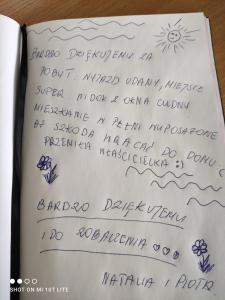 BARDZO DZIĘKUJEMY ZA
POBYT. WYJAZD UDANY, MIEJSCE
SUPER WIDOK Z OKNA CUDNY
MIESZKANIE W PEŁNI WYPOSAŻONE
AŻ SZKODA WRACAĆ DO DOMU
PRZEMIŁA WŁAŚCICIELKA :)
BARDZO DZIĘKUJEMY
I DO ZOBACZENIA ♡♡♡
NATALIA I PIOTR
SHOT ON MI 9T LITE